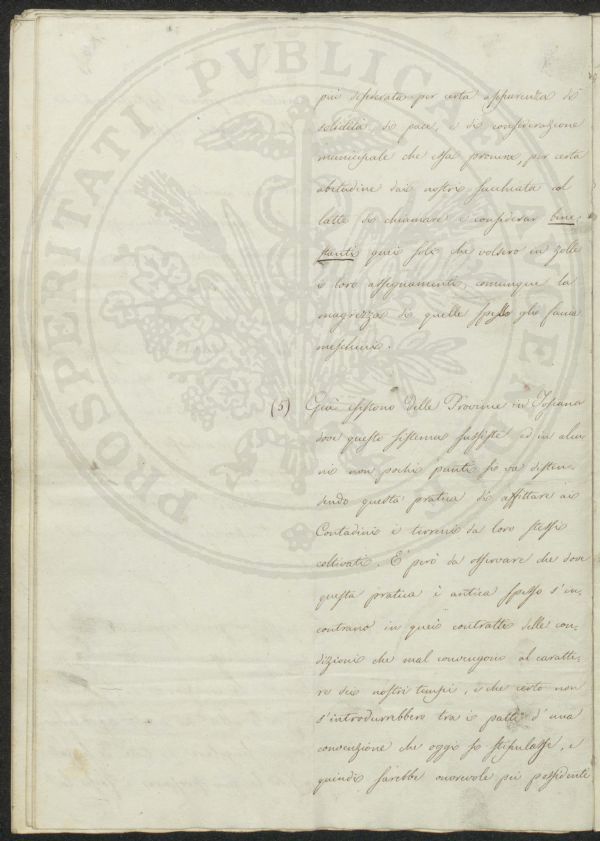 PROSPERITATI PVBLICAE
più desiderata per certa apparenza di
solidità, di pace, e di considerazione
municipale che essa promove, per certa
abitudine dai nostri succhiata col
latte di chiamare e considerar bene-
stanti quei soli che volsero in zolle
i loro assegnamenti, comunque la
magrezza di quelle spesso gli faccia
meschini.
(5) Già esistono delle Provincie in Toscana
dove questo sistema sussiste ed in alcu-
ni non pochi punti si va disten-
dendo questa pratica di affittare ai
Contadini i terreni da loro stessi
coltivati. E' però da osservare che dove
questa pratica è antica spesso s'in-
contrano in quei contratti delle con-
dizioni che mal convengono al caratte-
re dei nostri tempi, e che certo non
s'introdurrebbero tra i patti d'una
convenzione che oggi si stipulasse, e
quindi sarebbe onorevole pei possidenti